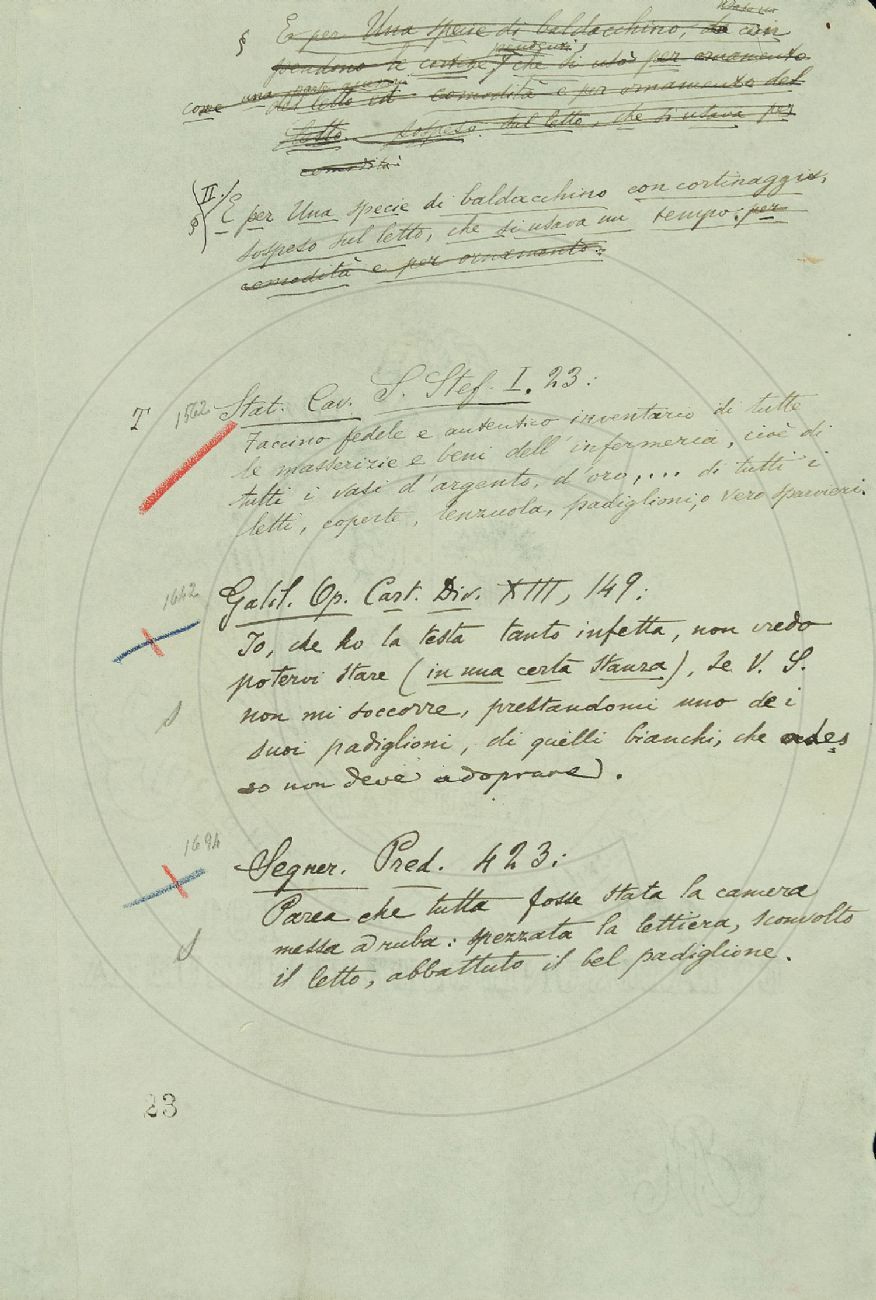 § E per Una specie di baldacchino, da cui
pendono le cortine, che si usò per ornamento
come una parte
del letto ed comodità e per ornamento del
letto. sospeso sul letto, che si usava per
comodità.
II. § E per Una specie di baldacchino con cortinaggio,
sospeso sul letto, che si usava un tempo. per
comodità e per ornamento.
T 1562 Stat. Cav. S. Stef. I. 23:
Faccino fedele e autentico inventario di tutte
le masserizie e beni dell'infermeria, cioè di
tutti i vasi d'argento, d'oro,... di tutti i
letti, coperte, lenzuola, padiglioni, o vero sparvieri.
1642 Galil. Op. Cart. Div. XIII, 149:
Io, che ho la testa tanto infetta, non credo
potervi stare (in una certa stanza), se V. S.
S non mi soccorre, prestandomi uno dei
suoi padiglioni, di quelli bianchi, che ades
so non deve adoprare.
1694 Segner. Pred. 423:
Parea che tutta fosse stata la camera
messa a ruba: spezzata la lettiera, sconvolto
S il letto, abbattuto il bel padiglione.
23